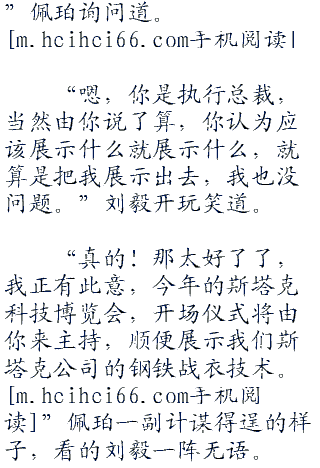 ”佩珀询问道。
[m.hcihci66.com手机阅读|
“嗯，你是执行总裁，
当然由你说了算，你认为应
该展示什么就展示什么，就
算是把我展示出去，我也没
问题。”刘毅开玩笑道。
“真的！那太好了了，
我正有此意，今年的斯塔克
科技博览会，开场仪式将由
你来主持，顺便展示我们斯
塔克公司的钢铁战衣技术。
[m.hcihci66.com手机阅
读]”佩珀一副计谋得逞的样
子，看的刘毅一阵无语。